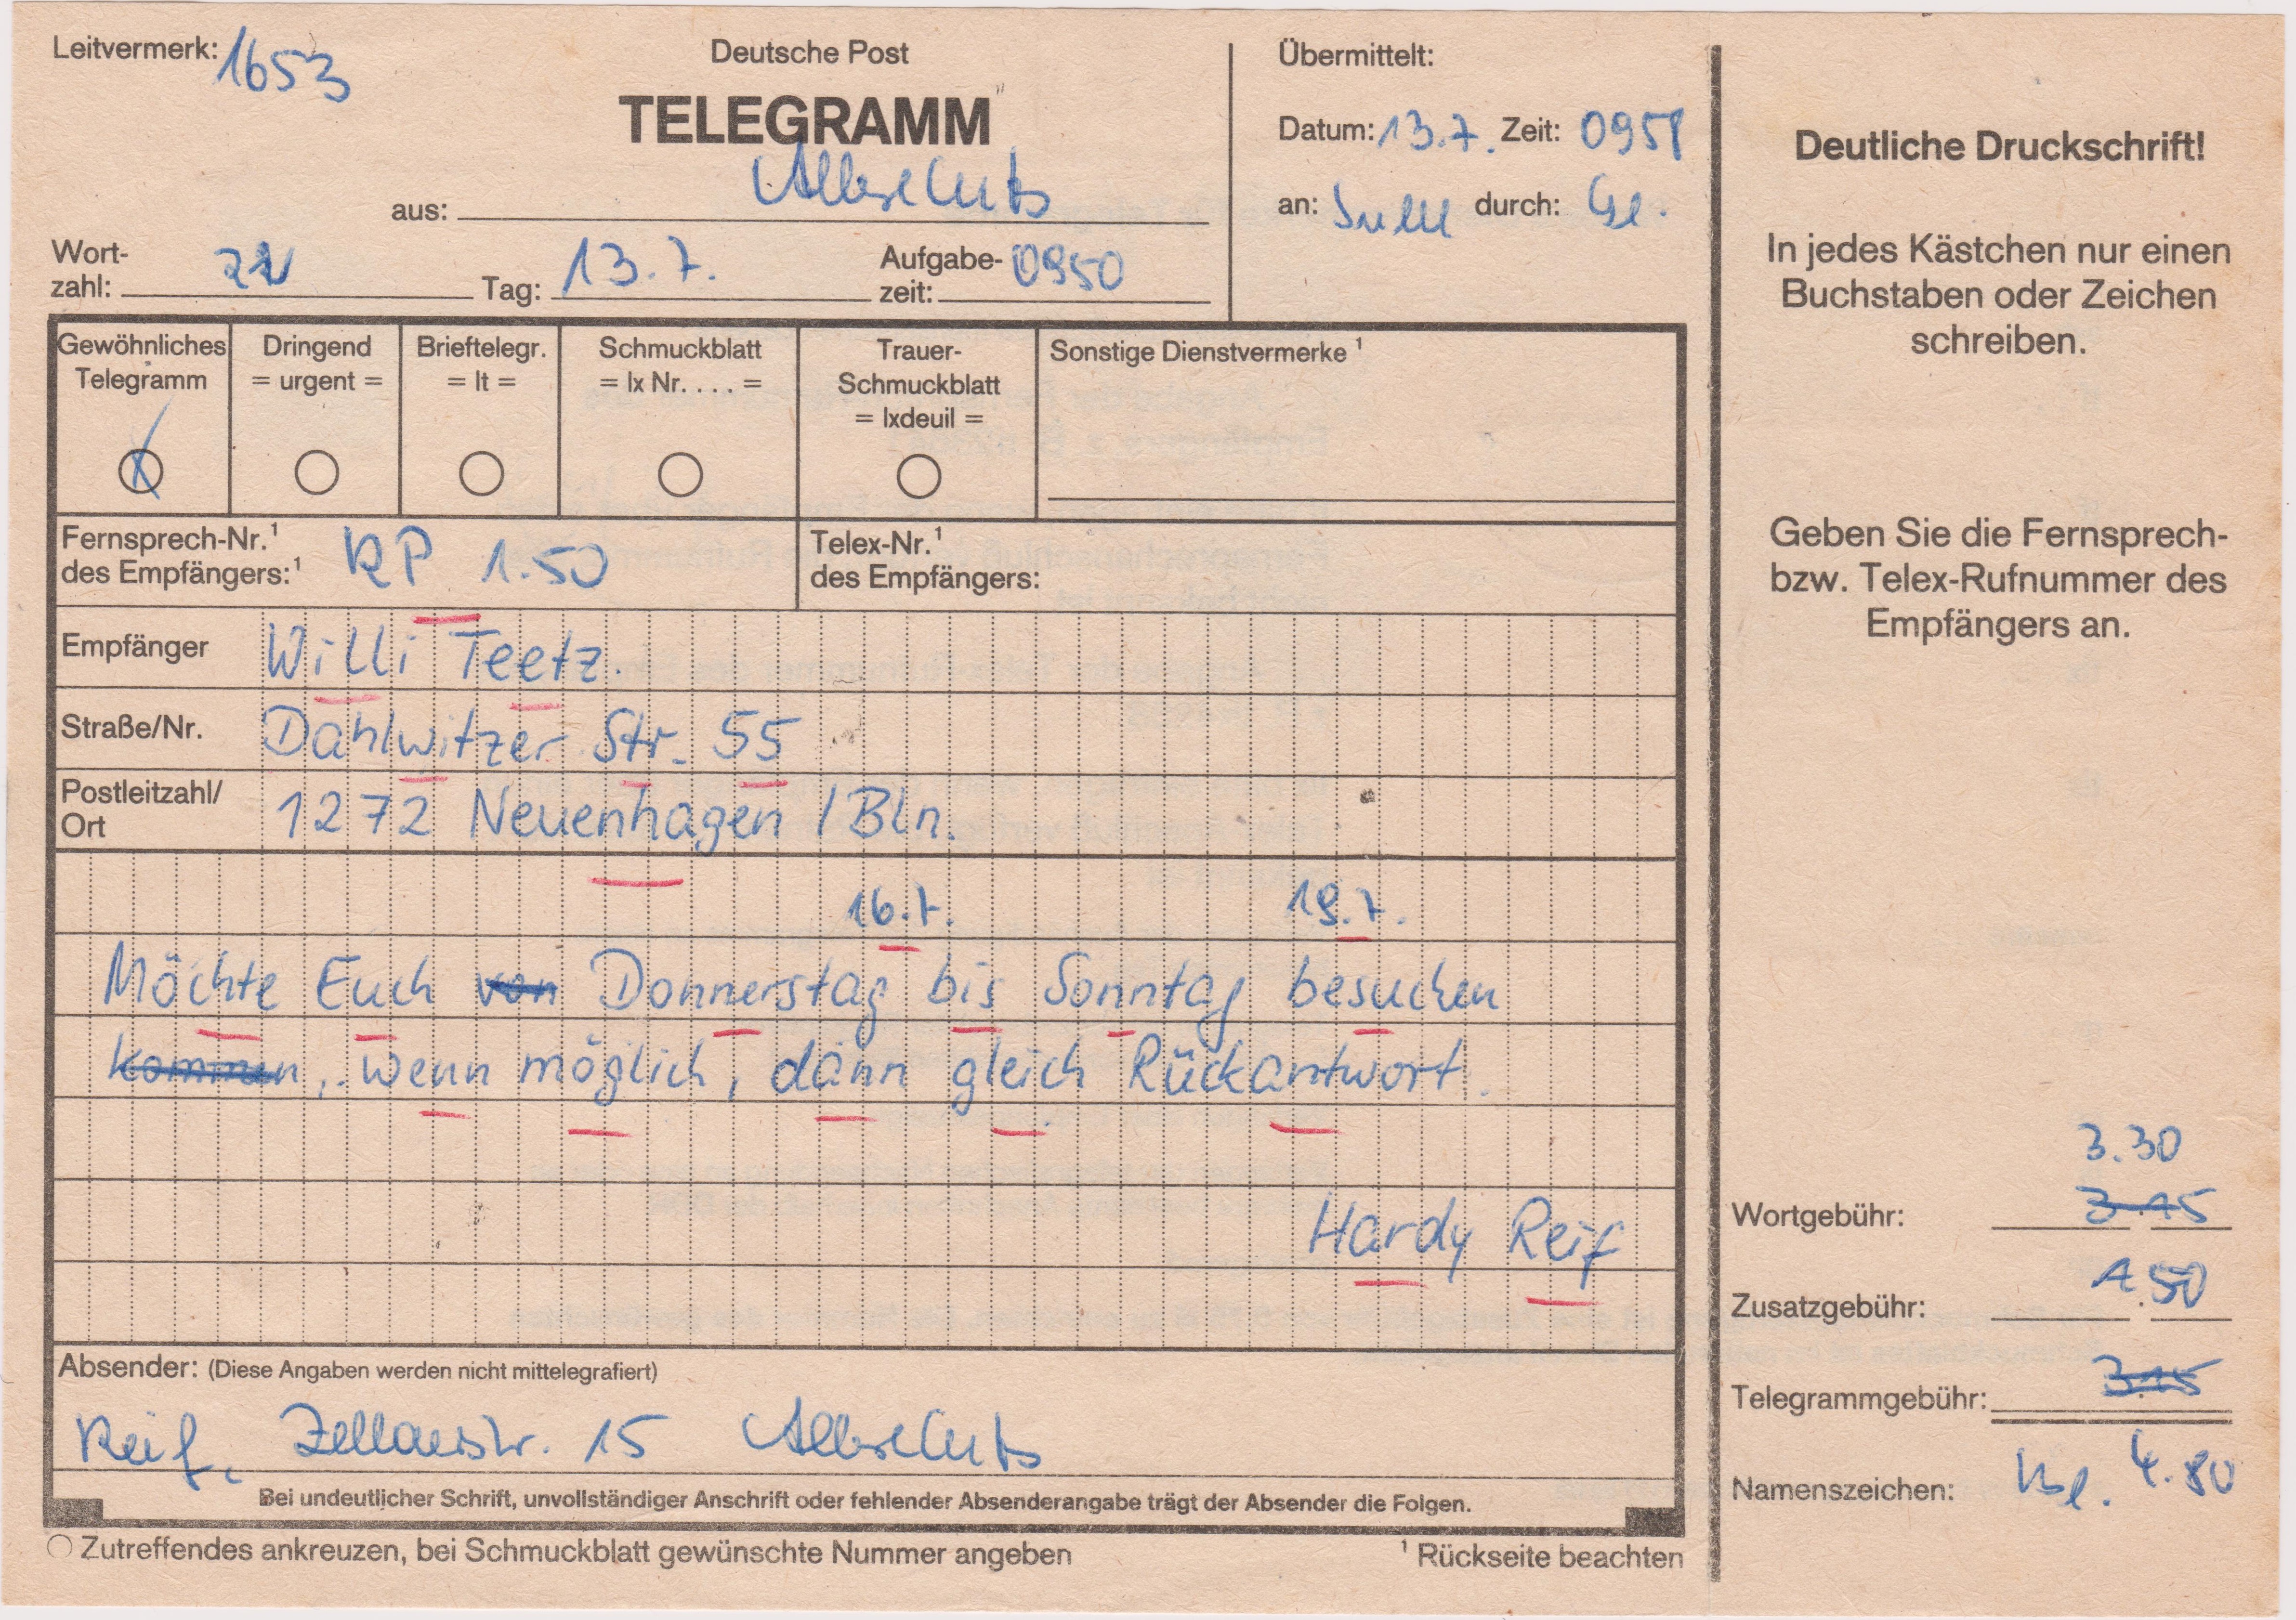 Leitvermerk: 1653
Deutsche Post
TELEGRAMM
aus: Albrechts
Wort-
zahl: 22
Tag: 13.7.
Aufgabe-
zeit: 0950
Übermittelt:
Datum: 13.7. Zeit: 0958
an: Suhl durch:
Gewöhnliches
Telegramm
Dringend
= urgent =
Brieftelegr.
= lt =
Schmuckblatt
= lx Nr. . . . =
Trauer-
Schmuckblatt
= lxdeuil =
Sonstige Dienstvermerke ¹
Fernsprech-Nr.¹
des Empfängers:¹ RP 1.50
Telex-Nr.¹
des Empfängers:
Empfänger Willi Teetz.
Straße/Nr. Dahlwitzer Str. 55
Postleitzahl/
Ort 1272 Neuenhagen / Bln.
16.7. 19.7.
Möchte Euch von Donnerstag bis Sonntag besuchen
kommen, wenn möglich, dann gleich Rückantwort.
Hardy Reif
Absender: (Diese Angaben werden nicht mittelegrafiert)
Reif, Zellaerstr. 15 Albrechts
Bei undeutlicher Schrift, unvollständiger Anschrift oder fehlender Absenderangabe trägt der Absender die Folgen.
Zutreffendes ankreuzen, bei Schmuckblatt gewünschte Nummer angeben
¹ Rückseite beachten
Deutliche Druckschrift!
In jedes Kästchen nur einen
Buchstaben oder Zeichen
schreiben.
Geben Sie die Fernsprech-
bzw. Telex-Rufnummer des
Empfängers an.
3.30
Wortgebühr: 3.15
Zusatzgebühr: 1.50
Telegrammgebühr: 3.15
4.80
Namenszeichen: